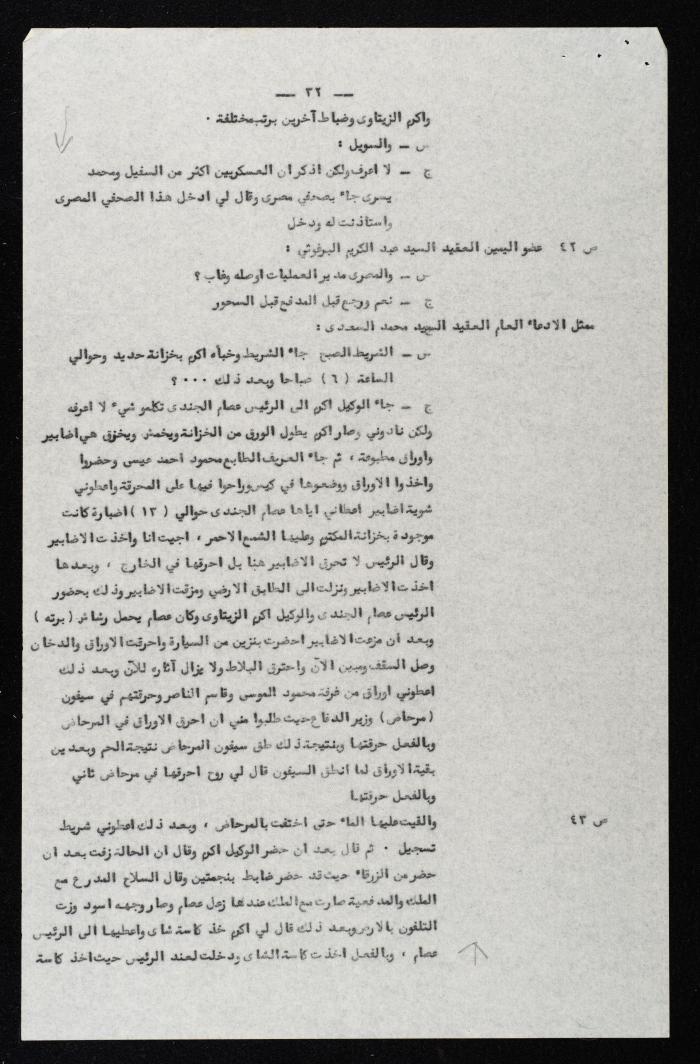 — ٣٢ —
واكرم الزيتاوى وضباط آخرين برتب مختلفة ٠
س — والسويل :
ج — لا اعرف ولكن اذكر ان العسكريين اكثر من السفيل ومحمد
يسرى جاء بصحفي مصرى وقال لي ادخل هذا الصحفي المصرى
واستاذنت له ودخل
ص ٤٢ عضو اليمين العقيد السيد عبد الكريم البرغوثي :
س — والمصرى مدير العمليات اوصله وغاب ؟
ج — نعم ورجع قبل المدفع قبل السحور
ممثل الادعاء العام العقيد السيد محمد السعدى :
س — الشريط الصبح جاء الشريط وخبأه اكرم بخزانة حديد وحوالي
الساعة ( ٦ ) صباحا وبعد ذلك ٠٠٠ ؟
ج — جاء الوكيل اكرم الى الرئيس عصام الجندى تكلمو شيء لا اعرفه
ولكن نادوني وصار اكرم يطول الورق من الخزانة ويخمش ويخزق هي اضابير
واوراق مطبوعة ، ثم جاء العريف الطابع محمود احمد عيسى وحضروا
واخذوا الاوراق ووضعوها في كيس وراحوا فيها على المحرقة واعطوني
شوية اضابير اعطاني اياها عصام الجندى حوالي ( ١٣ ) اضبارة كانت
موجودة بخزانة المكتوم وعليها الشمع الاحمر ، اجيت انا واخذت الاضابير
وقال الرئيس لا تحرق الاضابير هنا بل احرقها في الخارج ، وبعدها
اخذت الاضابير ونزلت الى الطابق الارضي ومزقت الاضابير وذلك بحضور
الرئيس عصام الجندى والوكيل اكرم الزيتاوى وكان عصام يحمل رشاش ( برته )
وبعد ان مزعت الاضابير احضرت بنزين من السيارة واحرقت الاوراق والدخان
وصل السقف ومبين الآن واحترق البلاط ولا يزال آثاره للآن وبعد ذلك
اعطوني اوراق من غرفة محمود الموسى وقاسم الناصر وحرقتهم في سيفون
( مرحاض ) وزير الدفاع حيث طلبوا مني ان احرق الاوراق في المرحاض
وبالفعل حرقتها وبنتيجة ذلك طق سيفون المرحاض نتيجة الحم وبعدين
بقية الاوراق لما انطق السيفون قال لي روح احرقها في مرحاض ثاني
وبالفعل حرقتها
ص ٤٣ والقيت عليها الماء حتى اختفت بالمرحاض ، وبعد ذلك اعطوني شريط
تسجيل ٠ ثم قال بعد ان حضر الوكيل اكرم وقال ان الحالة زفت بعد ان
حضر من الزرقاء حيث قد حضر ضابط بنجمتين وقال السلاح المدرع مع
الملك والمدفعية صارت مع الملك عندها زعل عصام وصار وجهه اسود وزت
التلفون بالارض وبعد ذلك قال لي اكرم خذ كاسة شاى واعطيها الى الرئيس
عصام ، وبالفعل اخذت كاسة الشاى ودخلت لعند الرئيس حيث اخذ كاسة